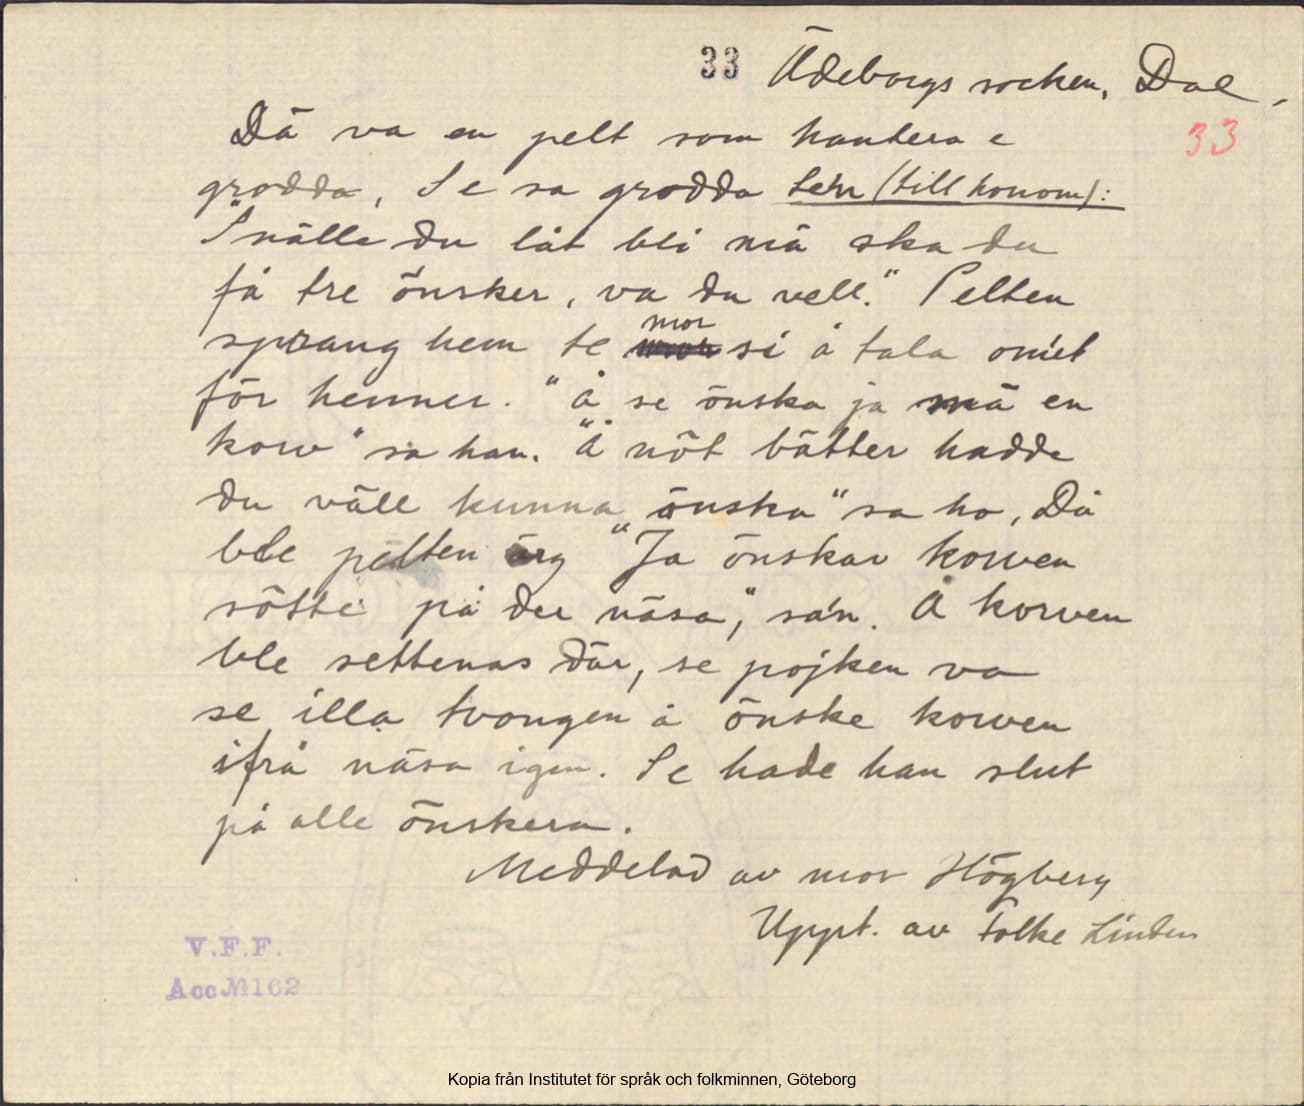 33 Ödeborgs socken, Dal.
33
Dä va en pelt som hantera e
grodda, Se sa grodda te'n (till honom):
"Snälle du låt bli mä ska du
få tre önsker, va du vell." Pelten
sprang hem te mor si å tala om'et
för henner. "Å se önska ja mä en
korv" sa han. "Å nôt bätter hadde
du väll kunna önska" sa ho, Då
ble pelten arg "Ja önskar korven
sôtte på der näsa", sa'n. Å korven
ble settenas där, se pojken va
se illa tvongen å önske korven
ifrå näsa igen. Se hade han slut
på alle önskera.
Meddelad av mor Högberg
Uppt. av Folke Linden
V.F.F.
Acc № 162
Kopia från Institutet för språk och folkminnen, Göteborg